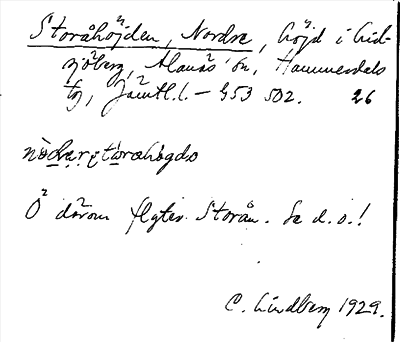 Storåhöjden, Nordre, höjd i Lid-
sjöberg, Alanäs sn, Hammerdals
tg, Jämtl. l. – 953 502. 26
Ö därom flyter Storån. Se d. o.!
C. Lindberg 1929.